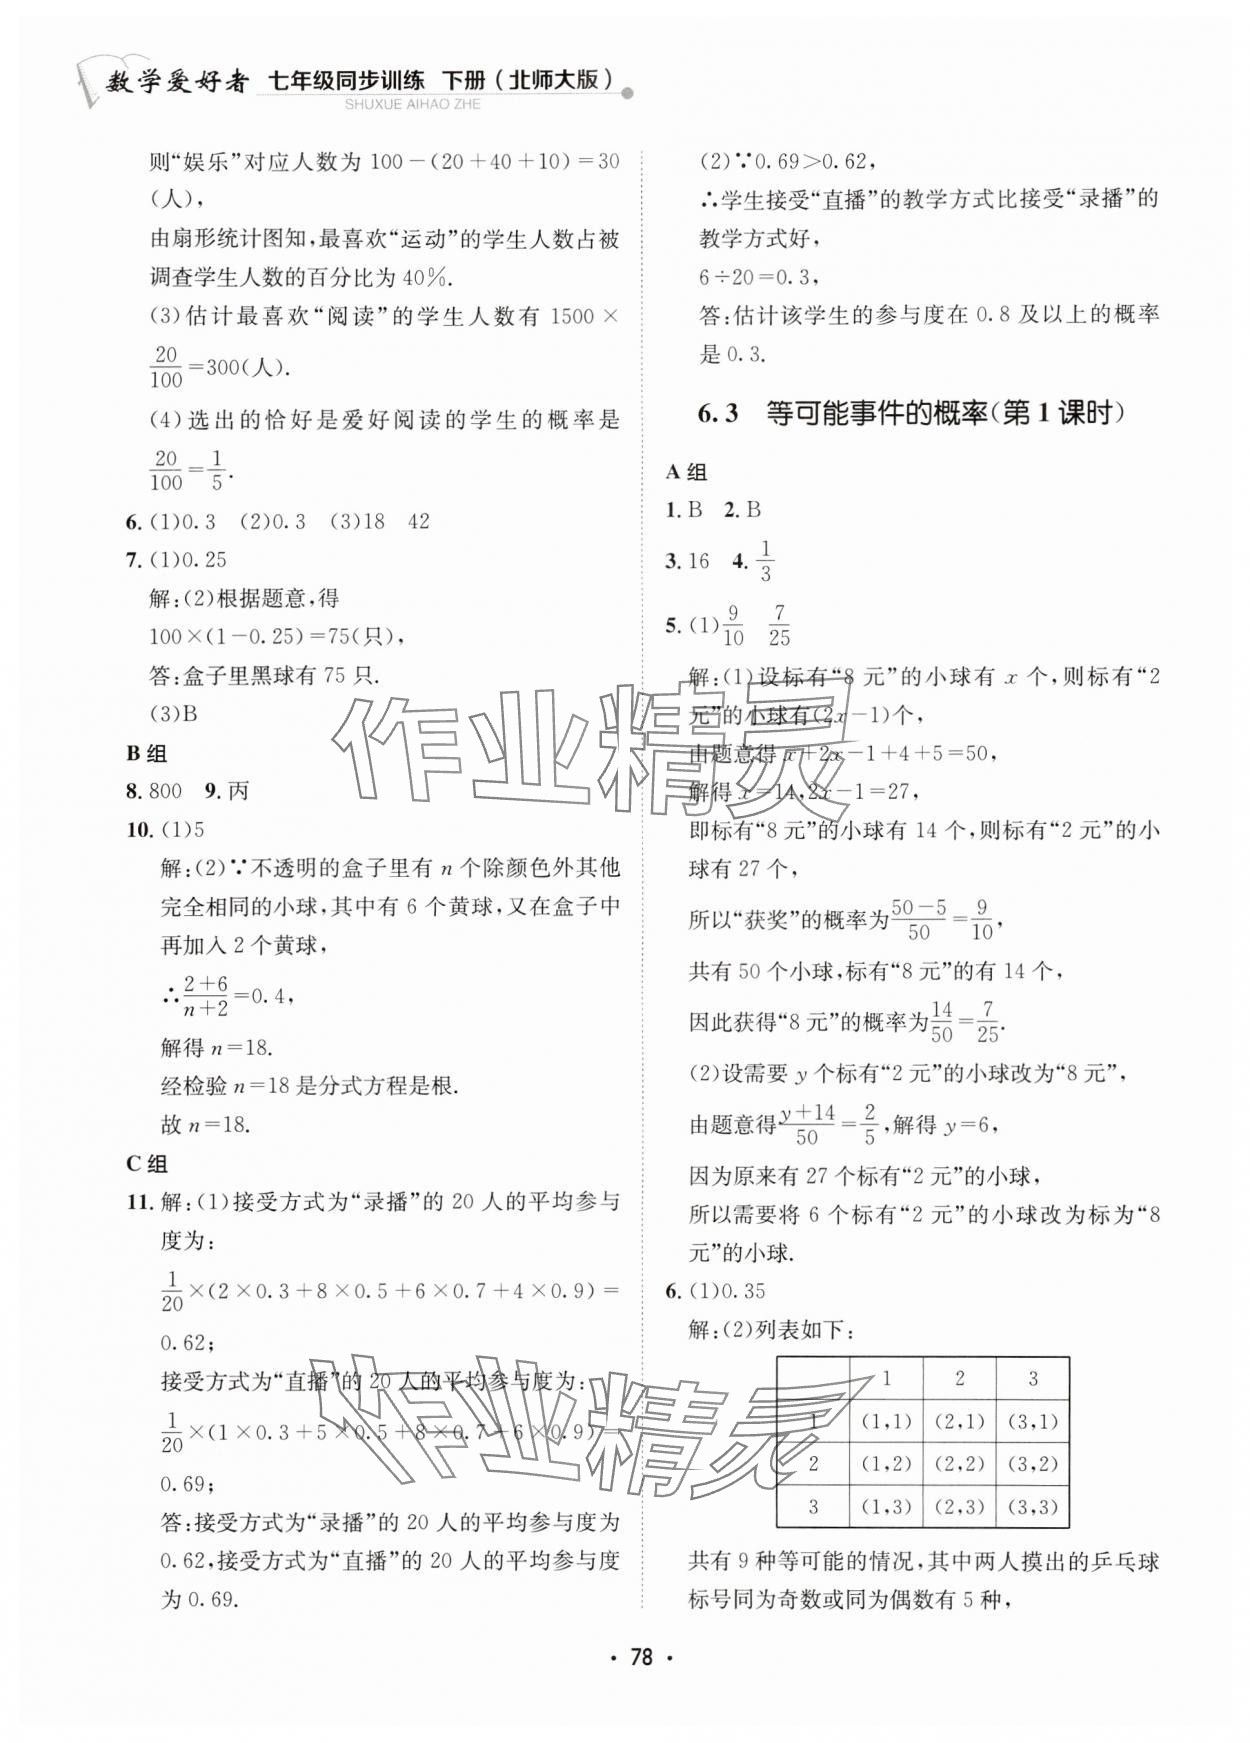 数学爱好者 七年级同步训练 下册（北师大版）
SHUXUE AIHAO ZHE
则“娱乐”对应人数为 100－(20＋40＋10)＝30
(人),
由扇形统计图知,最喜欢“运动”的学生人数占被
调查学生人数的百分比为 40%.
(3)估计最喜欢“阅读”的学生人数有 1500×
20/100＝300(人).
(4)选出的恰好是爱好阅读的学生的概率是
20/100＝1/5.
6. (1)0.3 (2)0.3 (3)18 42
7. (1)0.25
解:(2)根据题意,得
100×(1－0.25)＝75(只),
答:盒子里黑球有 75 只.
(3)B
B 组
8. 800 9. 丙
10. (1)5
解:(2)∵不透明的盒子里有 n 个除颜色外其他
完全相同的小球,其中有 6 个黄球,又在盒子中
再加入 2 个黄球,
∴(2＋6)/(n＋2)＝0.4,
解得 n＝18.
经检验 n＝18 是分式方程是根.
故 n＝18.
C 组
11. 解:(1)接受方式为“录播”的 20 人的平均参与
度为:
1/20×(2×0.3＋8×0.5＋6×0.7＋4×0.9)＝
0.62;
接受方式为“直播”的 20 人的平均参与度为:
1/20×(1×0.3＋5×0.5＋8×0.7＋6×0.9)＝
0.69;
答:接受方式为“录播”的 20 人的平均参与度为
0.62,接受方式为“直播”的 20 人的平均参与度
为 0.69.
(2)∵0.69＞0.62,
∴学生接受“直播”的教学方式比接受“录播”的
教学方式好,
6÷20＝0.3,
答:估计该学生的参与度在 0.8 及以上的概率
是 0.3.
6.3 等可能事件的概率(第 1 课时)
A 组
1. B 2. B
3. 16 4. 1/3
5. (1)9/10 7/25
解:(1)设标有“8 元”的小球有 x 个,则标有“2
元”的小球有(2x－1)个,
由题意得 x＋2x－1＋4＋5＝50,
解得 x＝14,2x－1＝27,
即标有“8 元”的小球有 14 个,则标有“2 元”的小
球有 27 个,
所以“获奖”的概率为(50－5)/50＝9/10,
共有 50 个小球,标有“8 元”的有 14 个,
因此获得“8 元”的概率为14/50＝7/25.
(2)设需要 y 个标有“2 元”的小球改为“8 元”,
由题意得(y＋14)/50＝2/5,解得 y＝6,
因为原来有 27 个标有“2 元”的小球,
所以需要将 6 个标有“2 元”的小球改为标为“8
元”的小球.
6. (1)0.35
解:(2)列表如下:
1 2 3
1 (1,1) (2,1) (3,1)
2 (1,2) (2,2) (3,2)
3 (1,3) (2,3) (3,3)
共有 9 种等可能的情况,其中两人摸出的乒乓球
标号同为奇数或同为偶数有 5 种,
· 78 ·
作业精灵
作业精灵